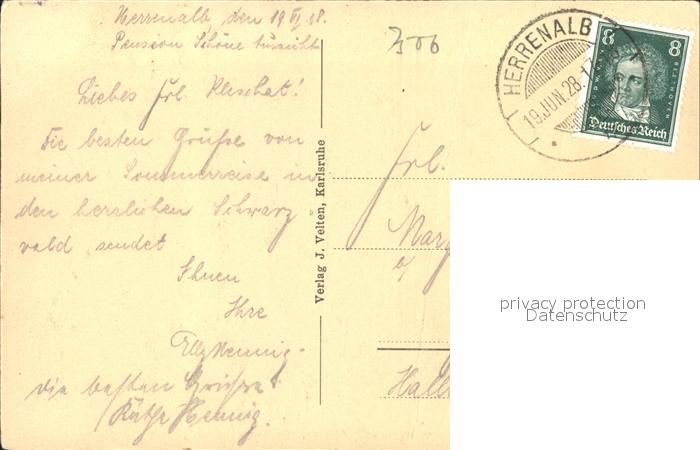 Herrenalb den 19 VI 28.
Pension Schöne Aussicht
Liebes Frl. Klischat!
Die besten Grüße von
meiner Sommerreise in
den herrlichen Schwarz
wald sendet
Ihnen
Ihre
Elly Hennig.
die besten Grüsse!
Käthe Hennig.
Verlag J. Velten, Karlsruhe
HERRENALB
19.JUN.28.
8 8
Deutsches Reich
Frl.
Marg
a/
Hall
privacy protection
Datenschutz